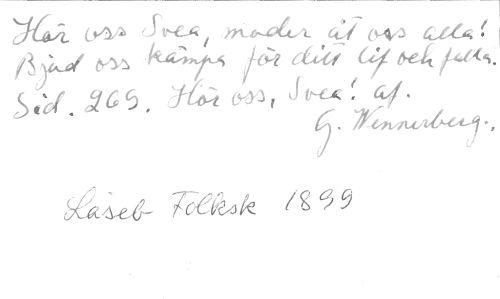 Hör oss Svea, moder åt oss alla!
Bjud oss kämpa för ditt lif och falla.
Sid. 269. Hör oss, Svea! af.
G. Wennerberg.
Läseb Folksk 1899